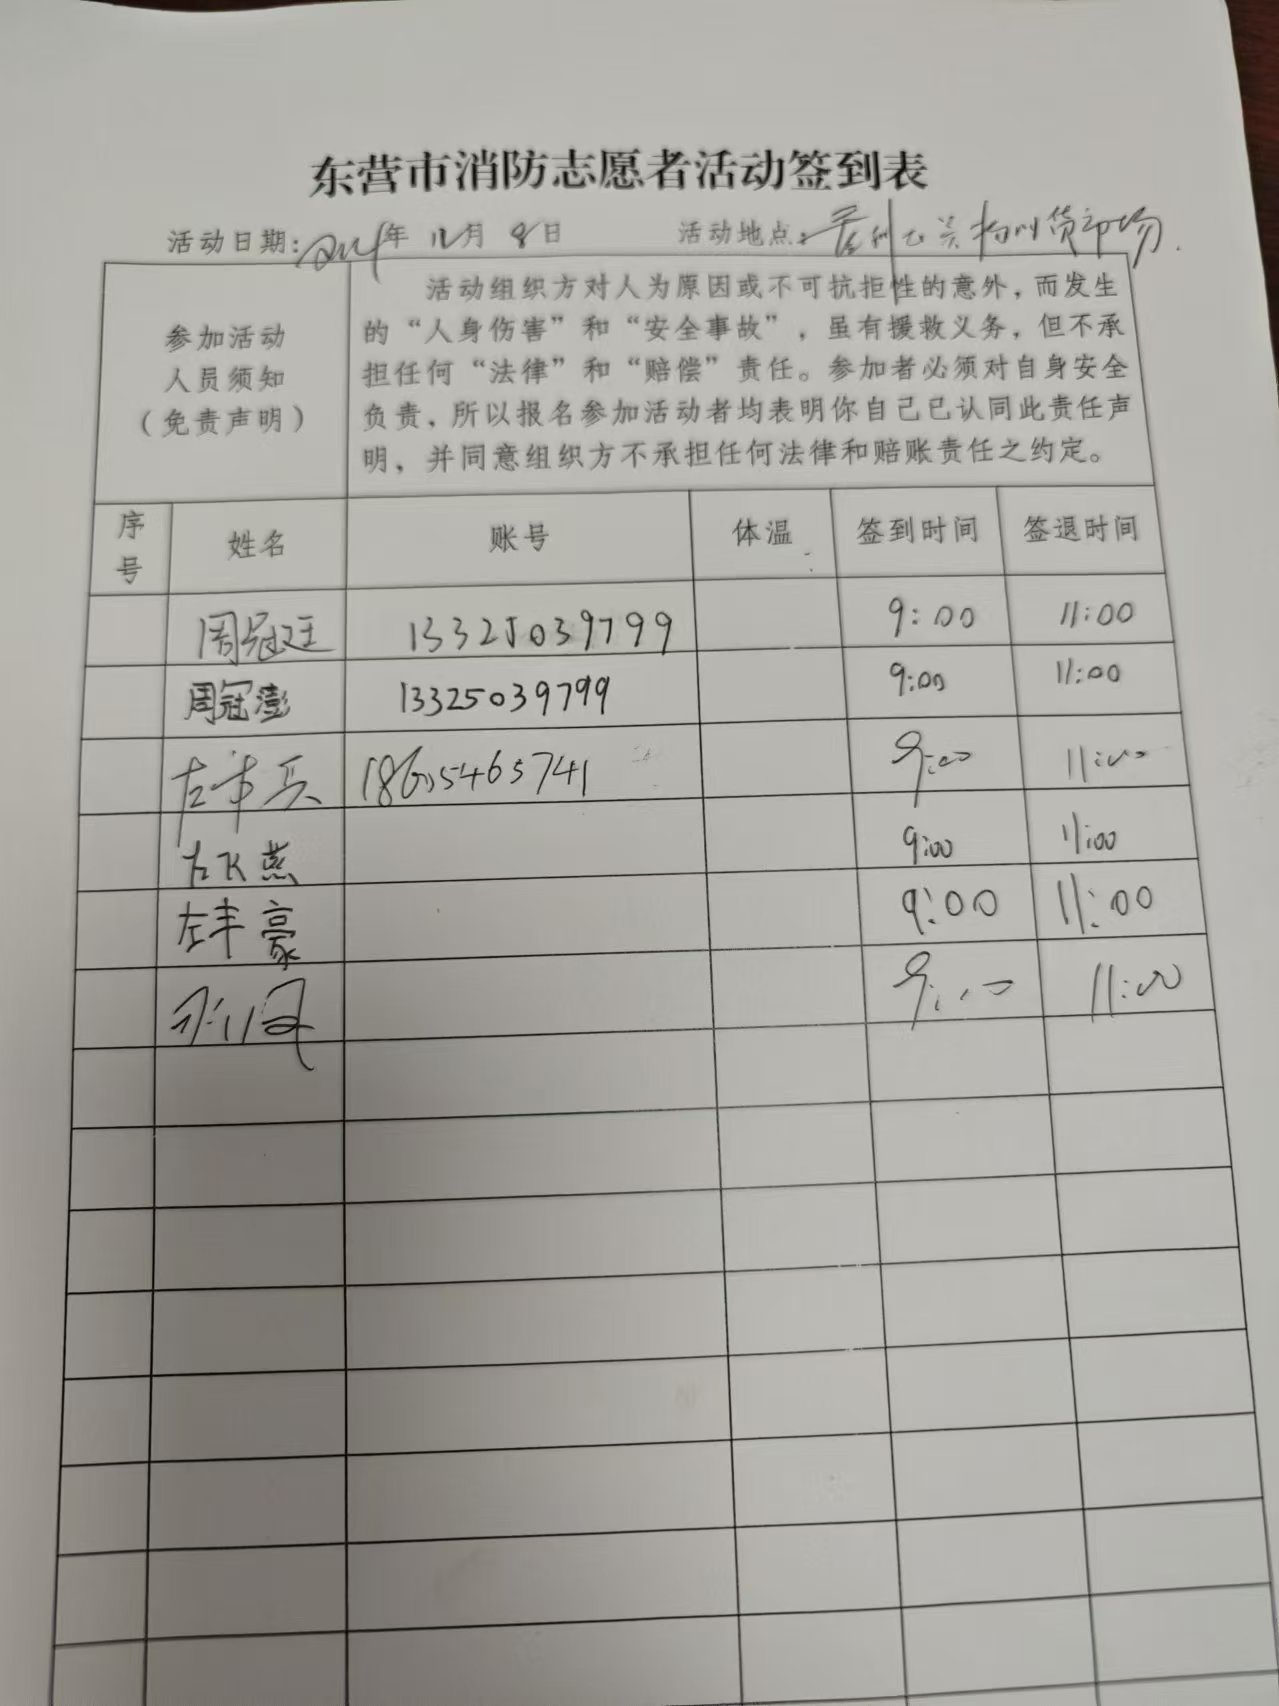 东营市消防志愿者活动签到表
活动日期: 2024年 12月 8日 活动地点:
参加活动
人员须知
（免责声明）
活动组织方对人为原因或不可抗拒性的意外，而发生
的“人身伤害”和“安全事故”，虽有援救义务，但不承
担任何“法律”和“赔偿”责任。参加者必须对自身安全
负责，所以报名参加活动者均表明你自己已认同此责任声
明，并同意组织方不承担任何法律和赔账责任之约定。
序号 姓名 账号 体温 签到时间 签退时间
周冠廷 13325039799 9:00 11:00
周冠澎 13325039799 9:00 11:00
18605465741 9:00 11:00
左飞燕 9:00 11:00
左丰豪 9:00 11:00
9:00 11:00